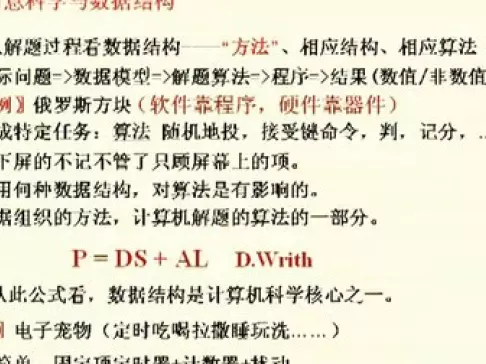 息科学与数据结构
人解题过程看数据结构——“方法”、相应结构、相应算法
际问题=>数据模型=>解题算法=>程序=>结果(数值/非数值
例》俄罗斯方块(软件靠程序，硬件靠器件)
成特定任务：算法 随机地投，接受键命令，判，记分，…
下屏的不记不管了只顾屏幕上的项。
用何种数据结构，对算法是有影响的。
据组织的方法，计算机解题的算法的一部分。
P = DS + AL D.Writh
从此公式看，数据结构是计算机科学核心之一。
电子宠物（定时吃喝拉撒睡玩洗……）
简单，固定项定时器+计数器+扰动